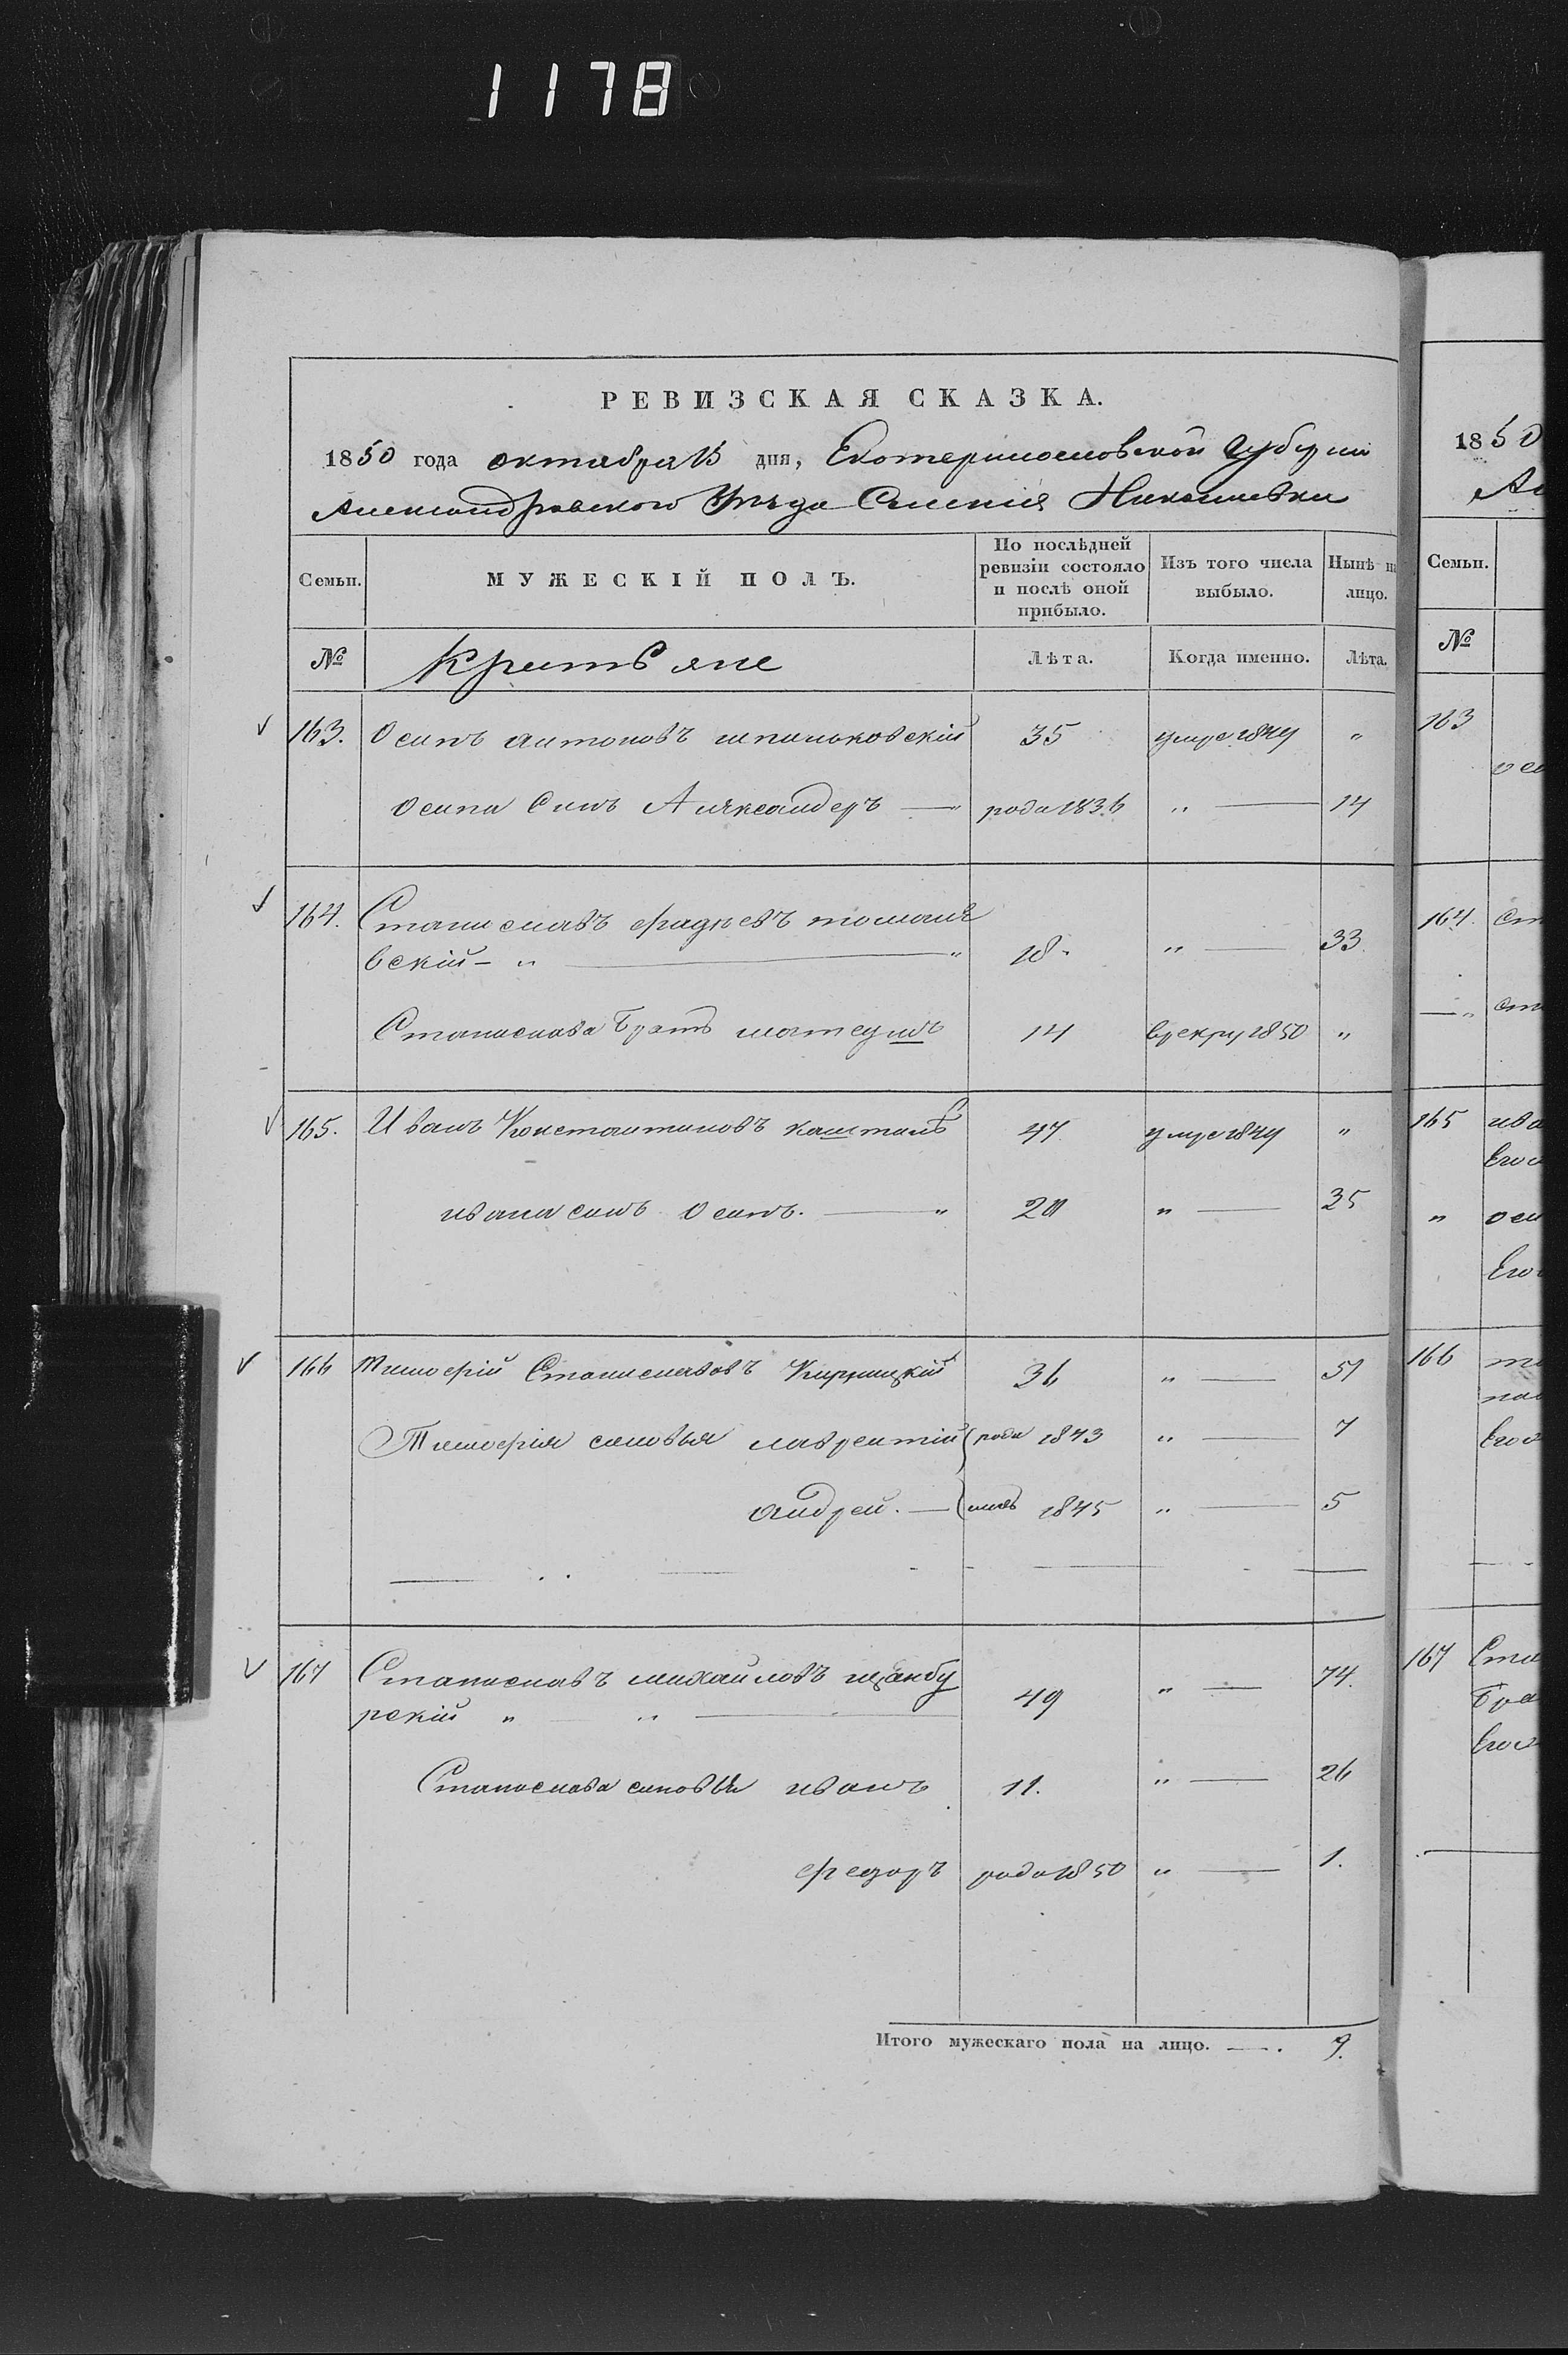 1178
РЕВИЗСКАЯ СКАЗКА.
1850 года октября 15 дня, Екотеринославской губернии
Александровского Уезда Селения Николаевки
Семьи. МУЖЕСКІЙ ПОЛЪ. По послѣдней ревизіи состояло и послѣ оной прибыло. Изъ того числа выбыло. Нынѣ на лицо.
№ Крестьяне Лѣта. Когда именно. Лѣта.
163. Осипъ антоновъ шпильковскій 35 умре 1849 "
Осипа Синъ Александеръ — " рода 1836 " — 14
164. Станиславъ фадѣевъ томаше
вскій - " — " 18 " — 33
Станислава Братъ матеушъ 14 врекру 1850 "
165. Иванъ Константиновъ каштанъ 47 умре 1849 "
ивана синъ Осипъ. — " 20 " — 35
166 тимофій Станиславовъ Кирницкій 36 " — 51
Тимофія синовья лаврентій рода 1843 " — 7
андрей. — 1845 " — 5
167 Станиславъ михайловъ
рскій " " — 49 " — 74.
Станислава синовья иванъ 11. " — 26
федоръ рода 1850 " — 1.
Итого мужескаго пола на лицо. — . 9.
1850
Ал
Семьи.
№
163
оси
164. ст
— " ст
165 ива
Его
" оси
Его
166
Его
167 Ста
Бра
Его